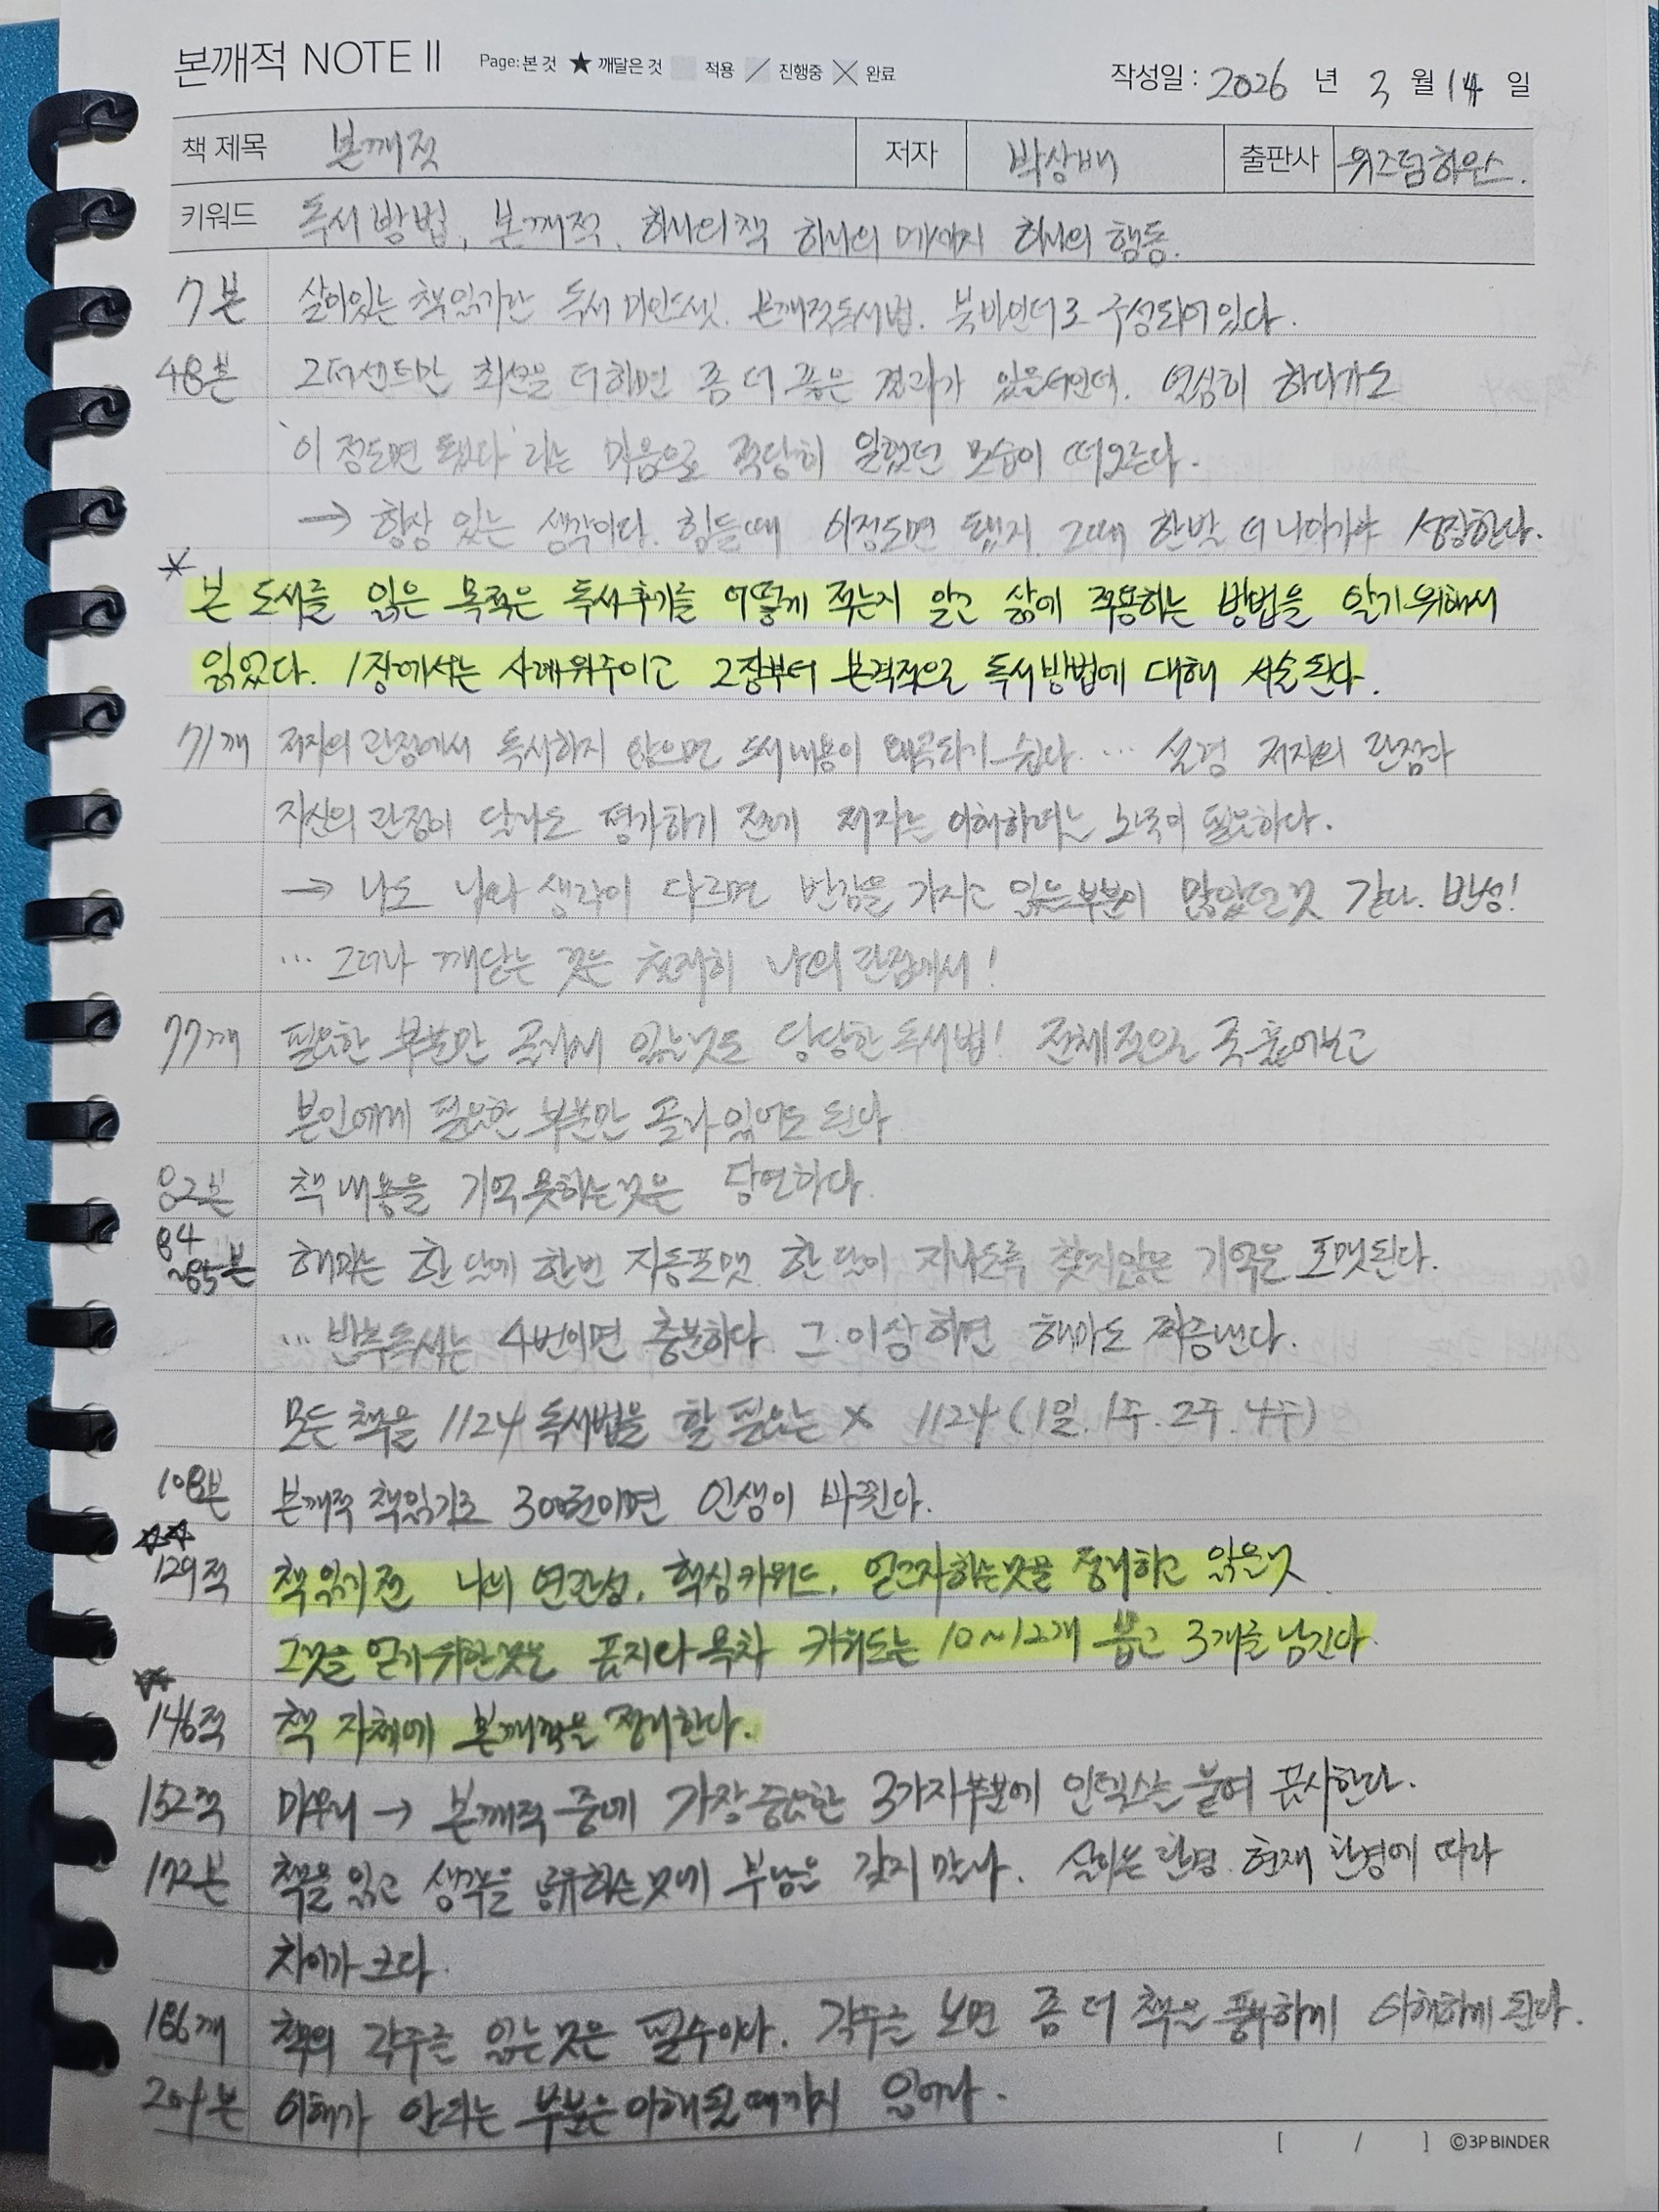 본깨적 NOTE II Page: 본 것 ★ 깨달은 것 적용 / 진행중 X 완료 작성일 : 2026 년 3 월 14 일
책 제목 본깨적 저자 박상배 출판사 위즈덤하우스.
키워드 독서방법, 본깨적, 하나의 책 하나의 메세지 하나의 행동.
7본 살아있는 책읽기란 독서 마인드셋. 본깨적독서법. 북바인더로 구성되어있다.
48본 2퍼센트만 최선을 더하면 좀 더 좋은 결과가 있을터인데. 열심히 하다가도
'이 정도면 됐다'라는 마음으로 적당히 일했던 모습이 떠오른다.
→ 항상 있는 생각이다. 힘들때 이정도면 됐지. 그때 한발 더 나아가야 성장한다.
* 본 도서를 읽은 목적은 독서후기를 어떻게 적는지 알고 삶에 적용하는 방법을 알기위해서
읽었다. 1장에서는 사례위주이고 2장부터 본격적으로 독서방법에 대해 서술된다.
71깨 저자의 관점에서 독서하지 않으면 도서내용이 왜곡되기 쉽다. … 설령 저자의 관점과
자신의 관점이 달라도 평가하기 전에 저자는 이해하려는 노력이 필요하다.
→ 나도 나와 생각이 다르면 반감을 가지고 읽은부분이 많았던것 같다. 반성!
… 그러나 깨닫는 것은 철저히 나의 관점에서!
77깨 필요한 부분만 골라서 읽는것도 당당한 독서법! 전체적으로 쭉 훑어보고
본인에게 필요한 부분만 골라 읽어도 된다
82본 책 내용을 기억 못하는것은 당연하다.
84~85본 해마는 한 달에 한번 자동포맷. 한 달이 지나도록 찾지않은 기억은 포맷된다.
… 반복독서는 4번이면 충분하다. 그 이상하면 해마도 짜증낸다.
모든 책을 1124 독서법을 할 필요는 x 1124 (1일. 1주. 2주. 4주)
108본 본깨적 책읽기로 300권이면 인생이 바뀐다.
☆☆ 129적 책 읽기 전 나와 연관성, 핵심키워드, 얻고자하는것을 정리하고 읽은것
그것을 얻기위한것은 표지와 목차 키워드는 10~12개 뽑고 3개를 남긴다.
☆ 146적 책 자체에 본깨적을 정리한다.
152적 마무리 → 본깨적 중에 가장 중요한 3가지부분에 인덱스를 붙여 표시한다.
172본 책을 읽고 생각을 공유하는것에 부담은 갖지 말자. 살아온 환경. 현재 환경에 따라
차이가 크다.
186깨 책의 각주를 읽는 것은 필수이다. 각주를 보면 좀 더 책을 풍부하게 이해하게 된다.
본 이해가 안되는 부분은 이해될때까지 읽어라.
[ / ] ©3P BINDER